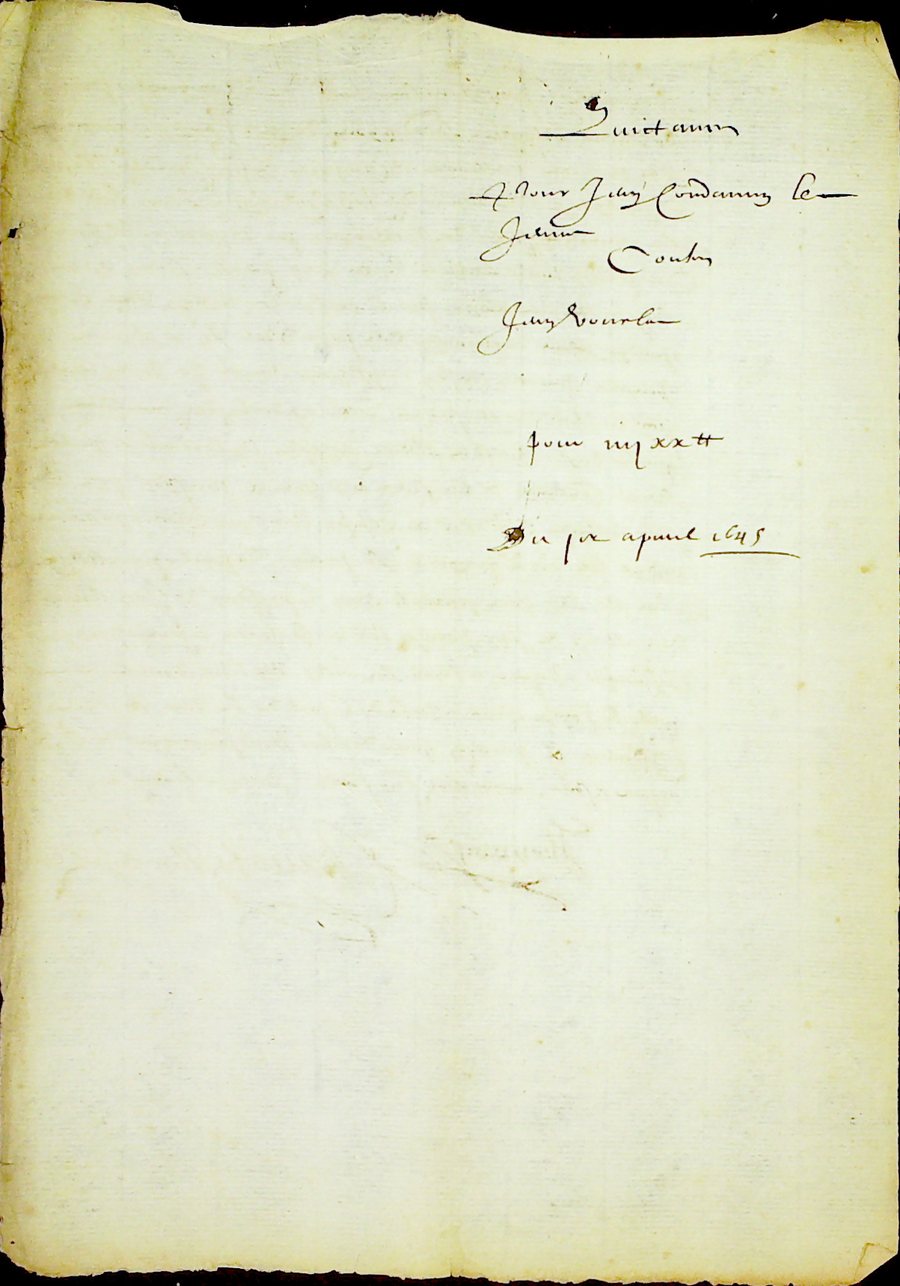 Quictance
Pour Jean Condamin le
Jeune
Contre
Jean
pour iiij xx ₶
Du ix apvril 1645